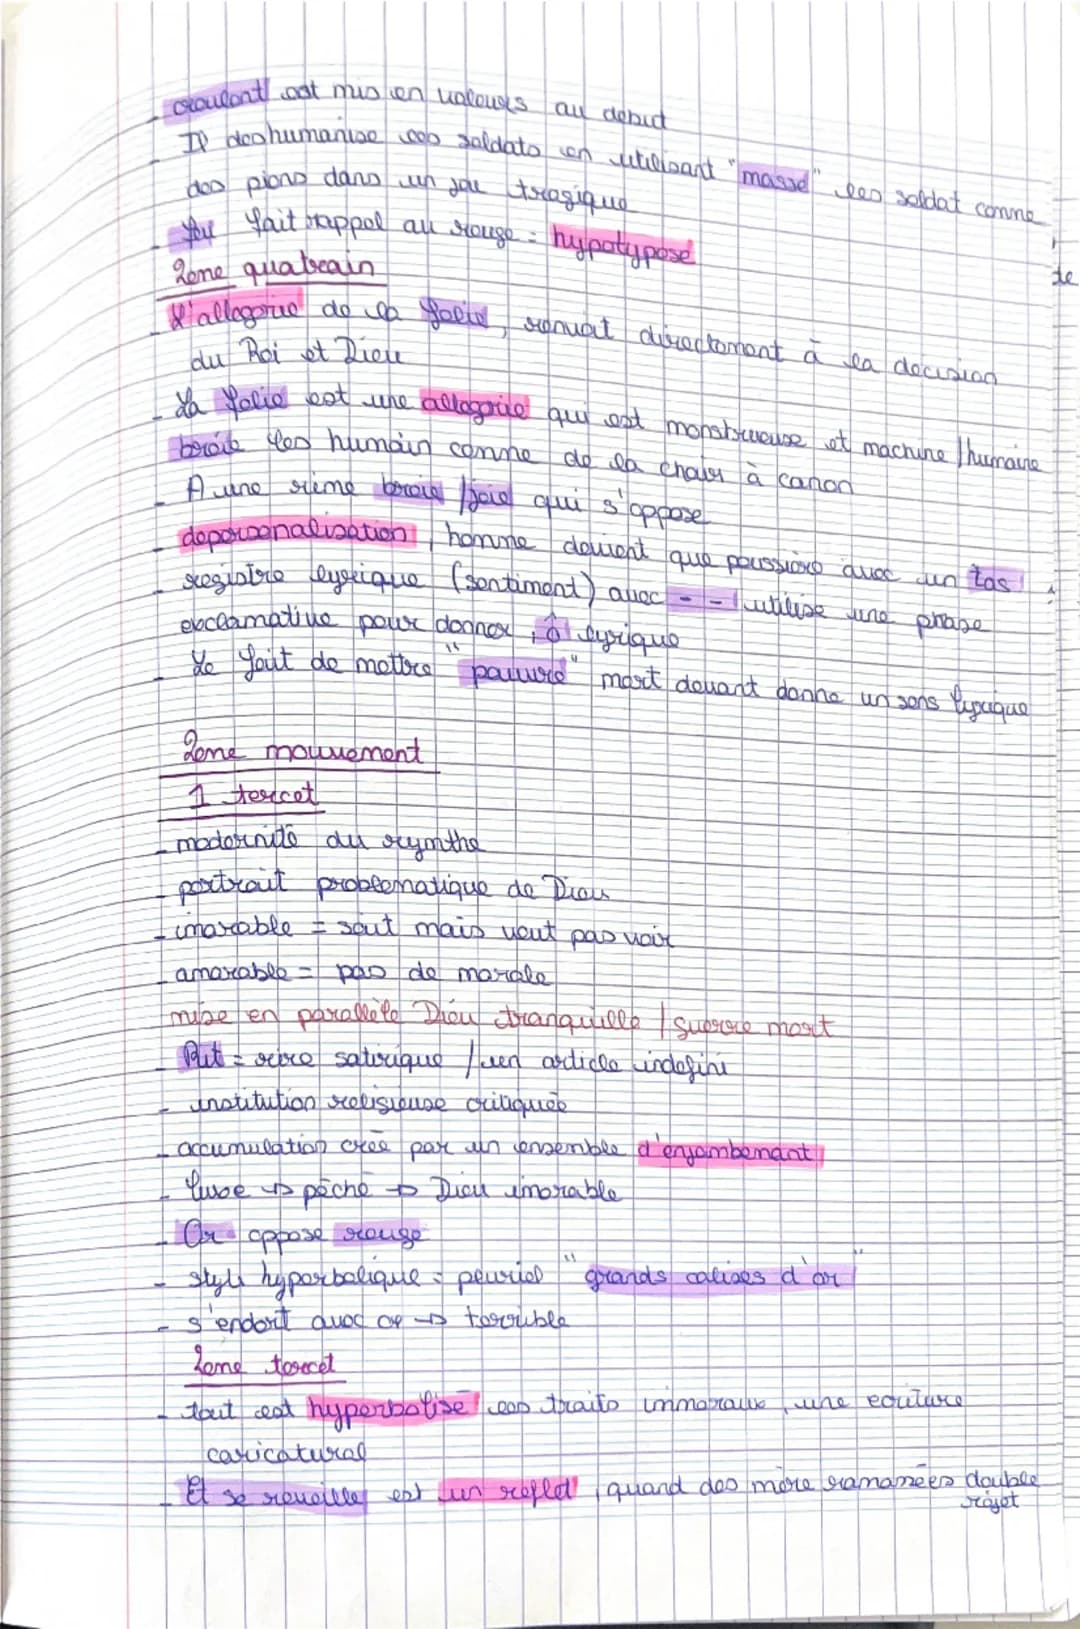 croulent est mis en valeurs au debut
- Il deshumanise ces soldats en utilisant "masse" les soldat comme
des pions dans un jeu tragique
- feu fait rappel au rouge = hypotypose
de
2eme quatrain
- L'allegorie de la folie, renvoit directement à la decision
du Roi et Dieu
- La folie est une allegorie qui est monstrueuse et machine / humaine
broie les humain comme de la chair à canon
- A une rime broie / joie qui s'oppose
- depersonalisation, homme devient que poussière avec un tas
- registre lyrique (sentiment) avec - - utilise une phrase
exclamative pour donner, ô lyrique
- Le fait de mettre "pauvre" mort devant donne un sens lyrique
2eme mouvement
1 tercet
- modernité du rymthe
- portrait problematique de Dieu
- imorable = sait mais veut pas voir
- amorable = pas de morale
mise en parallèle Dieu tranquille / guerre mort
- Rit = rire satirique / un article indefini
- institution religieuse critiquée
- accumulation crée par un ensemble d'enjambemant
- luxe → pêché → Dieu imorable
- Or oppose rouge
- style hyperbolique = pluriel "grands calices d'or"
- s'endort avec ça → terrible
2eme tercet
- tout est hyperbolisé ces traits immoraux, une ecriture
caricatural
- Et se réveille est un reflet, quand des mère ramassées double
rejet